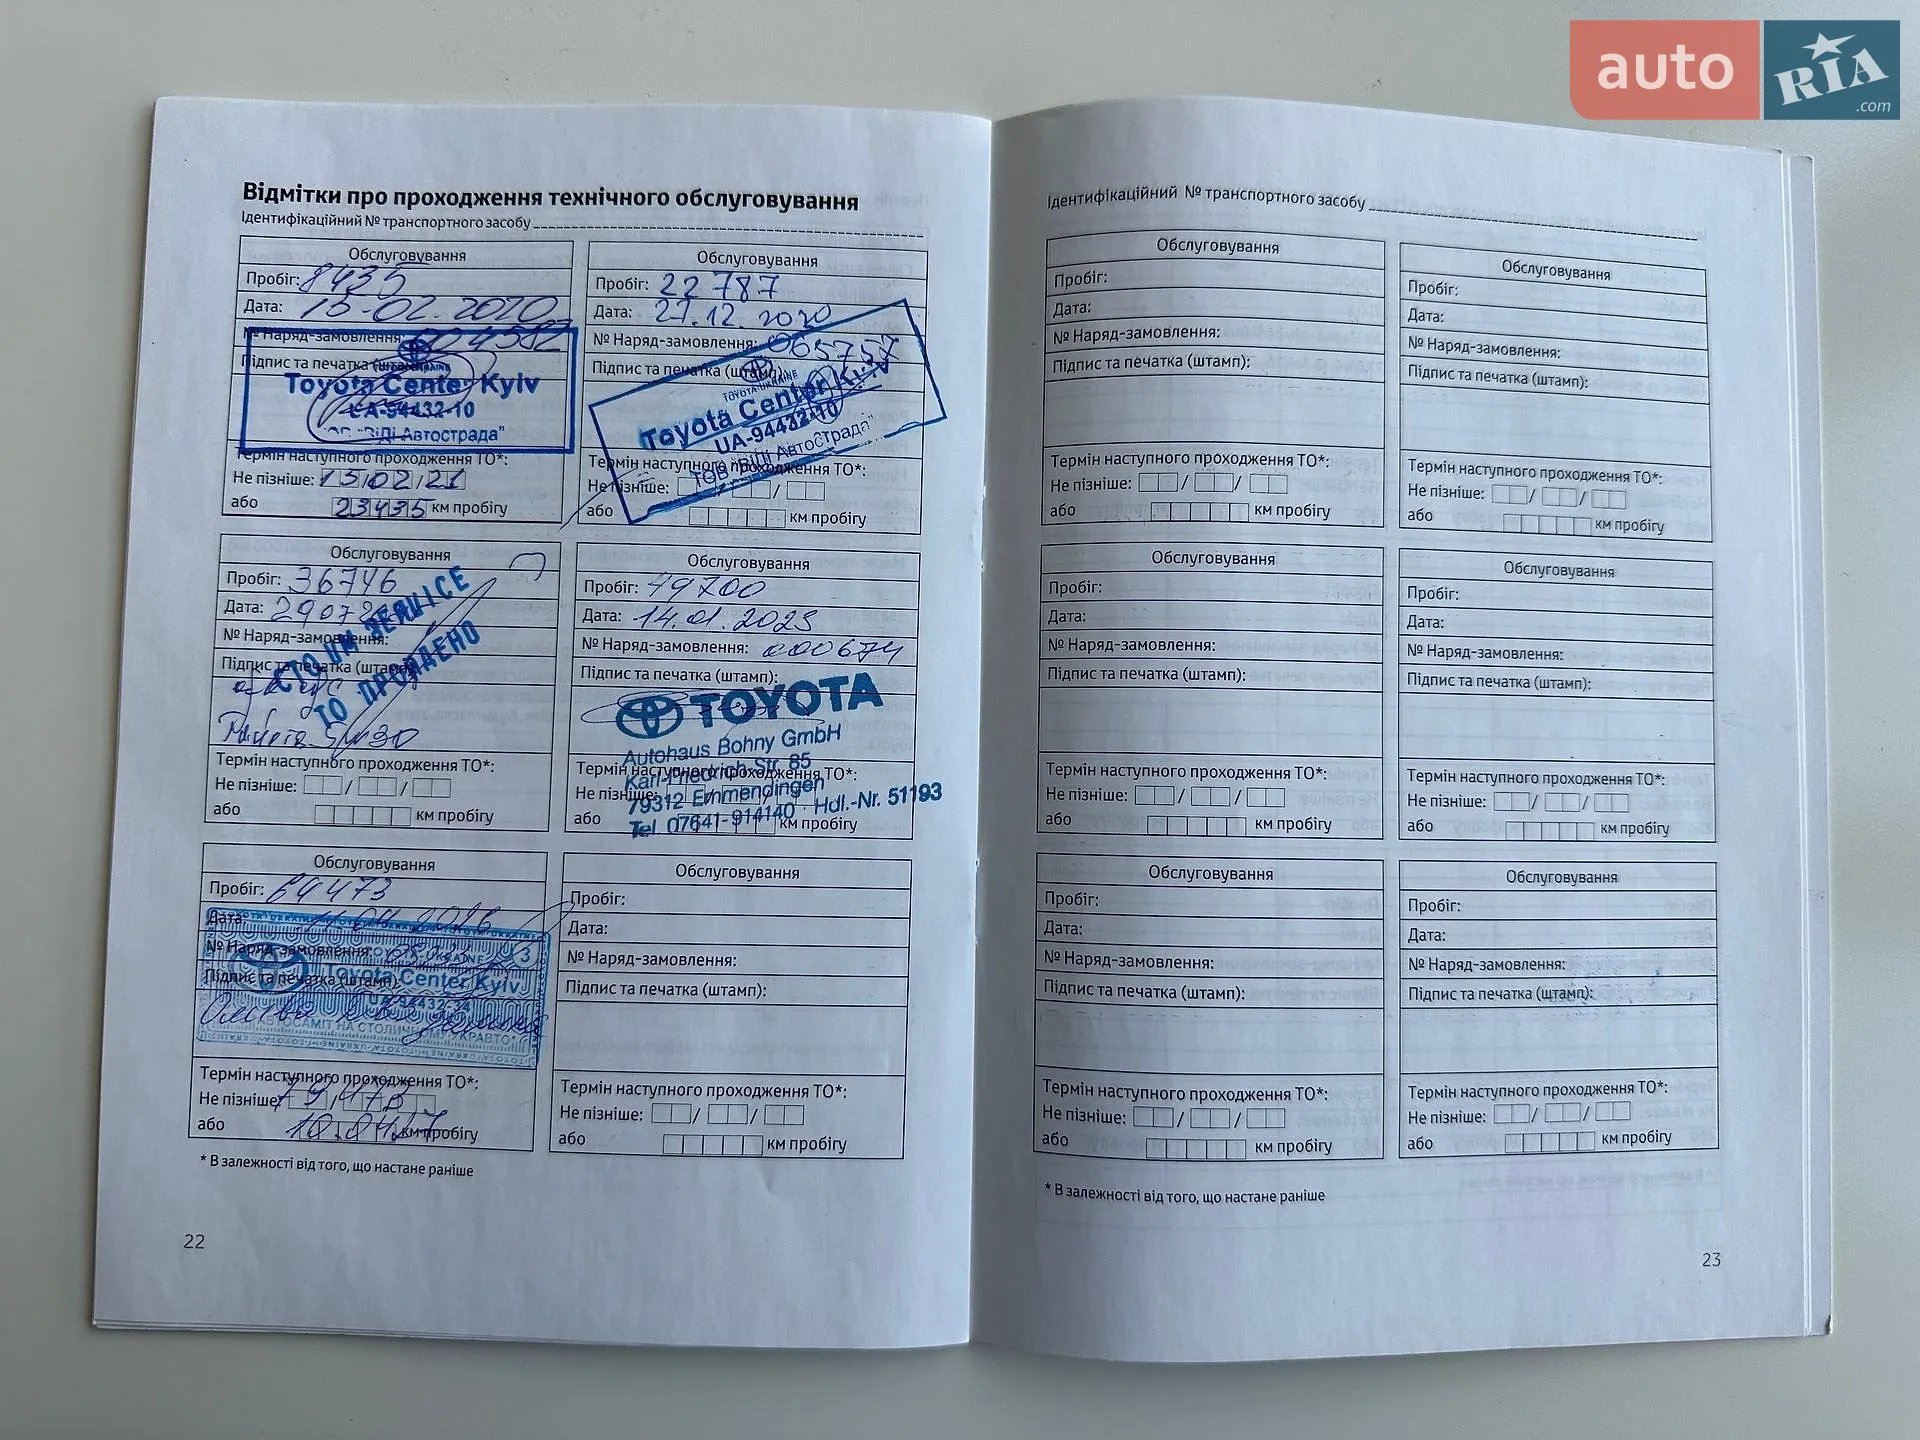 auto RIA .com
Відмітки про проходження технічного обслуговування
Ідентифікаційний № транспортного засобу
Обслуговування
Пробіг: 8435
Дата: 15.02.2020
№ Наряд-замовлення:
Підпис та печатка (штамп):
Toyota Center Kyiv
UA-94432-10
"ВіДі Автострада"
Термін наступного проходження ТО*:
Не пізніше: 15/02/21
або 23435 км пробігу
Обслуговування
Пробіг: 22 787
Дата: 27.12.2020
№ Наряд-замовлення: 065757
Підпис та печатка (штамп):
TOYOTA-UKRAINE
Toyota Center Kyiv
UA-94432-10
ТОВ "ВіДі Автострада"
Термін наступного проходження ТО*:
Не пізніше: / /
або км пробігу
Обслуговування
Пробіг: 36746
Дата: 2907
№ Наряд-замовлення:
Підпис та печатка (штамп):
СТО UM SERVICE
ТО ПРОЙДЕНО
5W30
Термін наступного проходження ТО*:
Не пізніше: / /
або км пробігу
Обслуговування
Пробіг: 49700
Дата: 14.01.2023
№ Наряд-замовлення: 000674
Підпис та печатка (штамп):
TOYOTA
Autohaus Bohny GmbH
Karl-Friedrich-Str. 85
79312 Emmendingen
Tel. 07641-914140 Hdl.-Nr. 51193
Термін наступного проходження ТО*:
Не пізніше: / /
або км пробігу
Обслуговування
Пробіг: 64473
Дата: 2026
№ Наряд-замовлення:
Підпис та печатка (штамп):
TOYOTA-UKRAINE 3
Toyota Center Kyiv
UA-94432-34
АВТОСАМІТ НА СТОЛИЧНОМУ УКРАВТО
Термін наступного проходження ТО*:
Не пізніше: 79 473
або 10.04.27 км пробігу
Обслуговування
Пробіг:
Дата:
№ Наряд-замовлення:
Підпис та печатка (штамп):
Термін наступного проходження ТО*:
Не пізніше: / /
або км пробігу
* В залежності від того, що настане раніше
22
Ідентифікаційний № транспортного засобу
Обслуговування
Пробіг:
Дата:
№ Наряд-замовлення:
Підпис та печатка (штамп):
Термін наступного проходження ТО*:
Не пізніше: / /
або км пробігу
Обслуговування
Пробіг:
Дата:
№ Наряд-замовлення:
Підпис та печатка (штамп):
Термін наступного проходження ТО*:
Не пізніше: / /
або км пробігу
Обслуговування
Пробіг:
Дата:
№ Наряд-замовлення:
Підпис та печатка (штамп):
Термін наступного проходження ТО*:
Не пізніше: / /
або км пробігу
Обслуговування
Пробіг:
Дата:
№ Наряд-замовлення:
Підпис та печатка (штамп):
Термін наступного проходження ТО*:
Не пізніше: / /
або км пробігу
Обслуговування
Пробіг:
Дата:
№ Наряд-замовлення:
Підпис та печатка (штамп):
Термін наступного проходження ТО*:
Не пізніше: / /
або км пробігу
Обслуговування
Пробіг:
Дата:
№ Наряд-замовлення:
Підпис та печатка (штамп):
Термін наступного проходження ТО*:
Не пізніше: / /
або км пробігу
* В залежності від того, що настане раніше
23